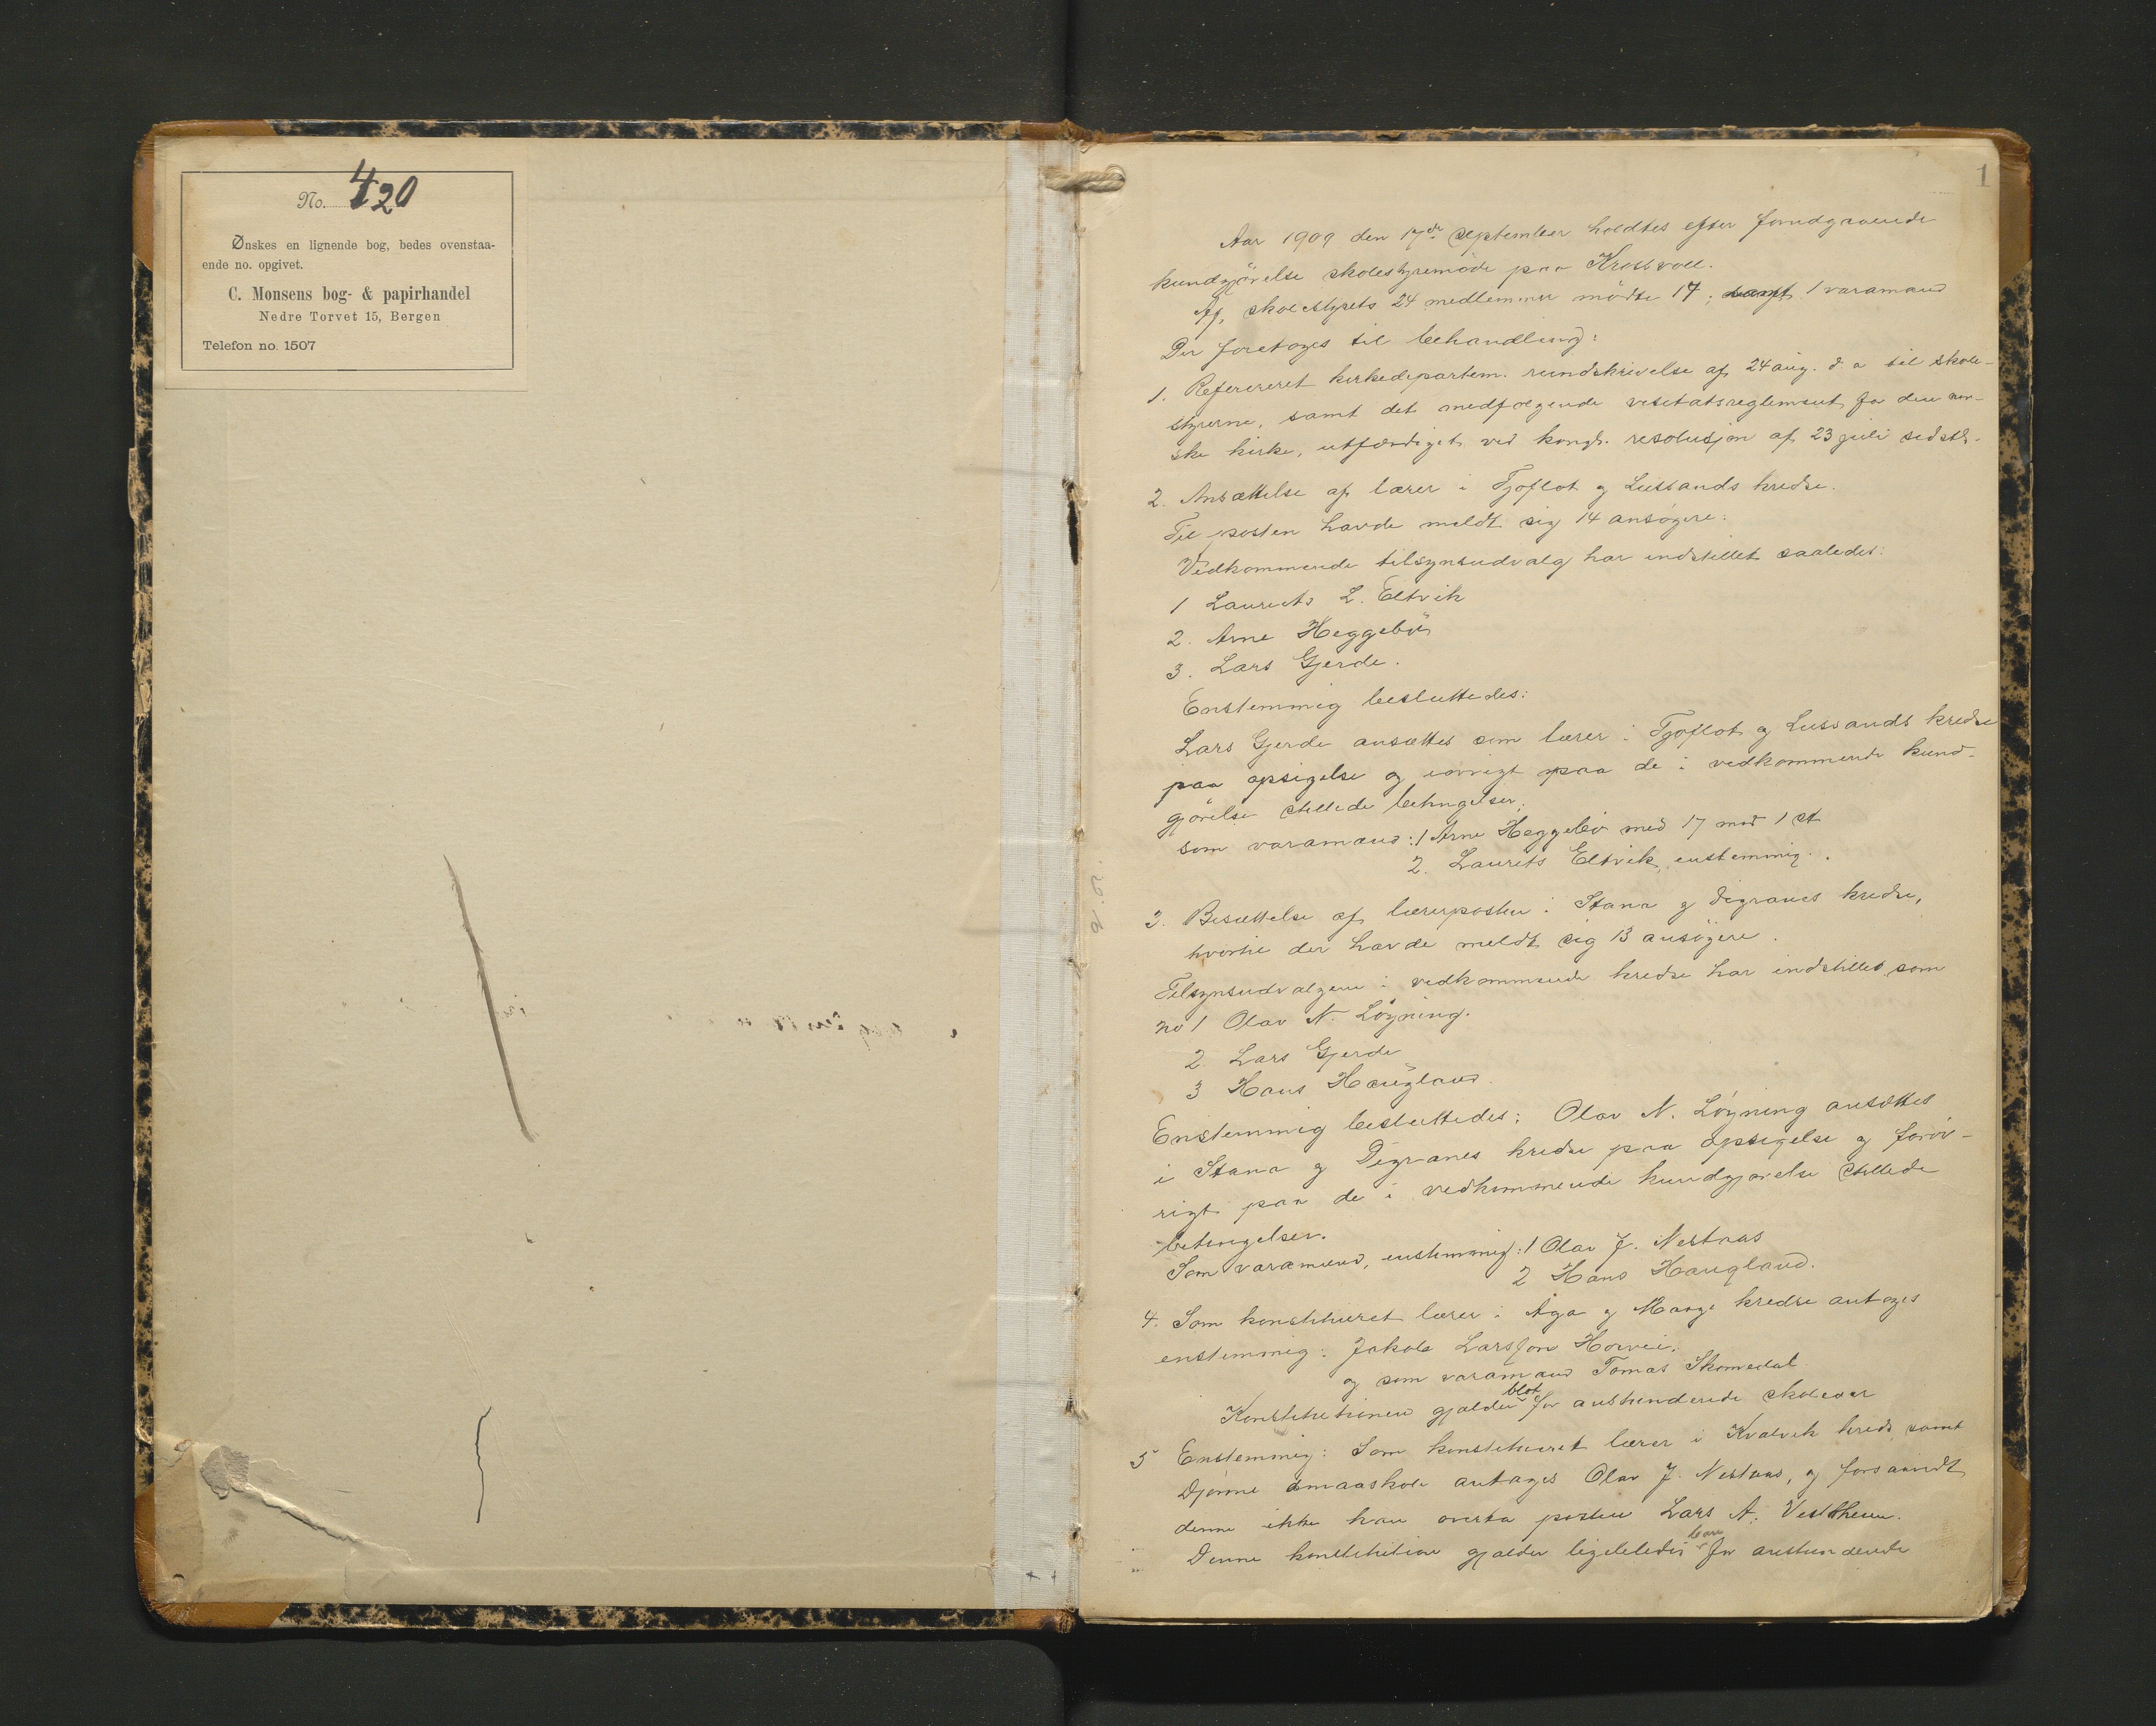 No. 420
Ønskes en lignende bog, bedes ovenstaa-
ende no. opgivet.
C. Monsens bog- & papirhandel
Nedre Torvet 15, Bergen
Telefon no. 1507
1
Aar 1909 den 17de September holdtes efter forudgaaende
kundgjörelse skolestyremöde paa Krossvoll.
Af skolestyrets 24 medlemmer mödte 17, samt 1 varamand
Der foretoges til behandling:
1. Refereret kirkedepartem. rundskrivelse af 24 aug. d. a til skole-
styrerne, samt det medfølgende visitatsreglement for den nor-
ske kirke, utfærdiget ved kongl. resolusjon af 23 juli sidstl.
2. Ansættelse af lærer i Tjoflot og Lussands kredse.
Til posten havde meldt sig 14 ansøgere.
Vedkommende tilsynsudvalg har indstillet saaledes:
1 Laurits L. Eltvik
2. Arne Heggebö
3. Lars Gjerde.
Enstemmig besluttedes:
Lars Gjerde ansættes som lærer i Tjoflot og Lussands kredse
paa opsigelse og iøvrigt paa de i vedkommende kund-
gjörelse stillede betingelser.
som varamænd: 1 Arne Heggebö med 17 mod 1 st
2. Laurits Eltvik, enstemmig.
3. Besættelse af lærerposten i Stana og Digranes kredse,
hvortil der havde meldt sig 13 ansögere.
Tilsynsudvalgene i vedkommende kredse har indstillet som
no 1 Olav N. Löyning.
2 Lars Gjerde
3 Hans Haugland.
Enstemmig besluttedes: Olav N. Löyning ansættes
i Stana og Digranes kredse paa opsigelse og foröv-
rigt paa de i vedkommende kundgjörelse stillede
betingelser.
Som varamænd, enstemmig: 1 Olav J. Nestaas
2 Hans Haugland.
4. Som konstitueret lærer i Aga og Mauge kredse antoges
enstemmig: Jakob Larsson Horvei.
og som varamand Tomas Skomedal
Konstitutionen gjælder blot for anstundende skoleaar
5 Enstemmig: Som konstitueret lærer i Kvalvik kreds samt
Djönne smaaskole antages Olav J. Nestaas, og forsaavidt
denne ikke kan overta posten Lars A. Vestrheim.
Denne konstitution gjælder ligeledes bare for anstundende